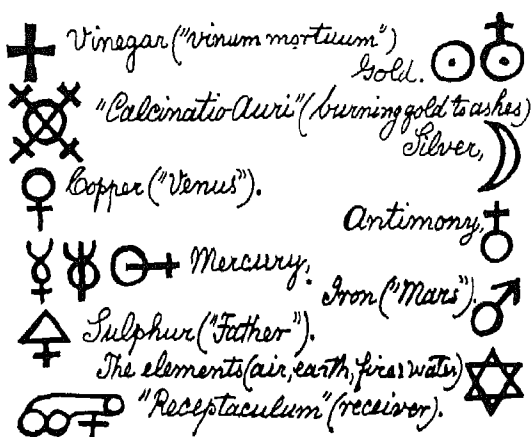 Vinegar ("vinum mortuum")
Gold.
"Calcinatio Auri" (burning gold to ashes)
Silver,
Copper ("Venus").
Antimony,
Mercury.
Iron ("Mars").
Sulphur ("Father").
The elements (air, earth, fire & water)
"Receptaculum" (receiver).